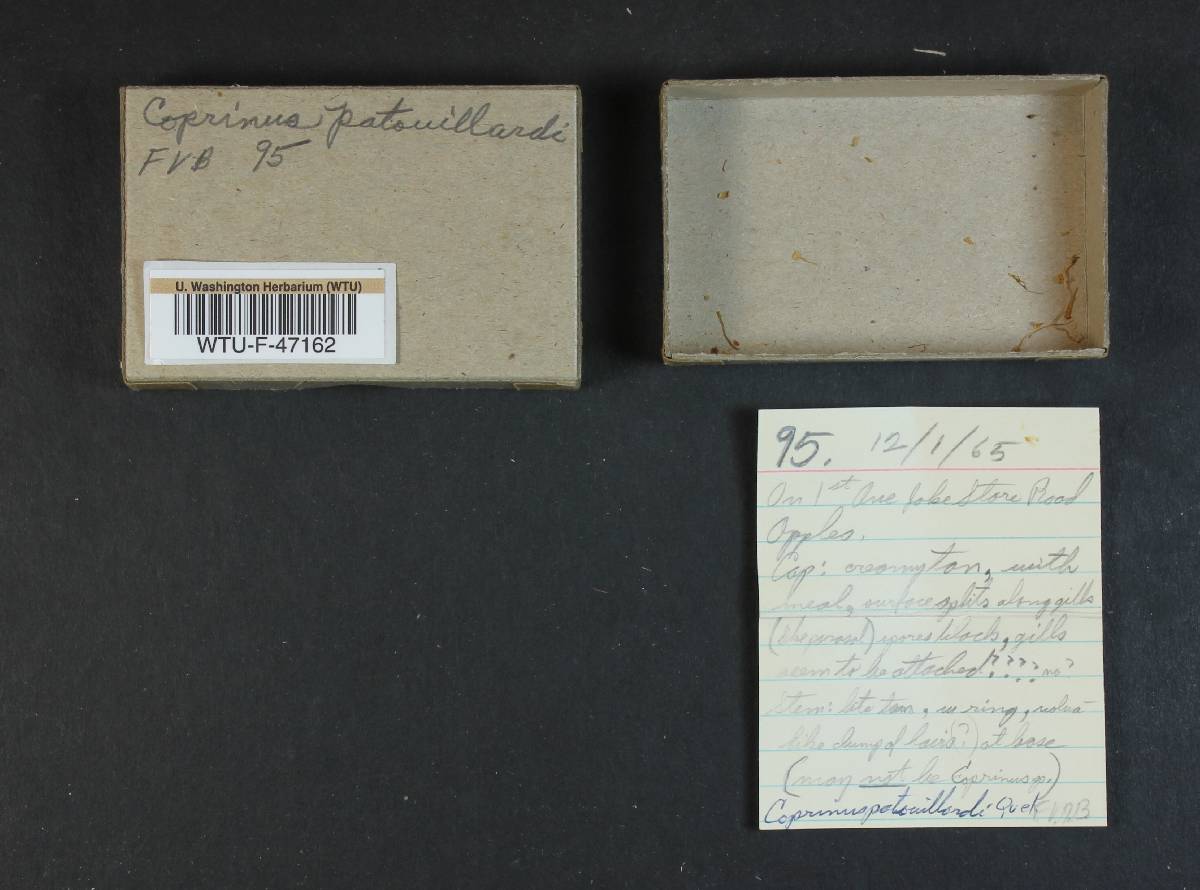 Coprinus patouillardi
FVB 95
U. Washington Herbarium (WTU)
WTU-F-47162
95. 12/1/65
On 1st Ave Store Road
Apples.
Cap: creamy tan, with
meal, surface splits along gills
spores black, gills
seem to be attached!???? no?
Stem: lite tan, ring, volva
like clump of hairs?) at base
(may not be Coprinus sp.)
Coprinus patouillardi Quel